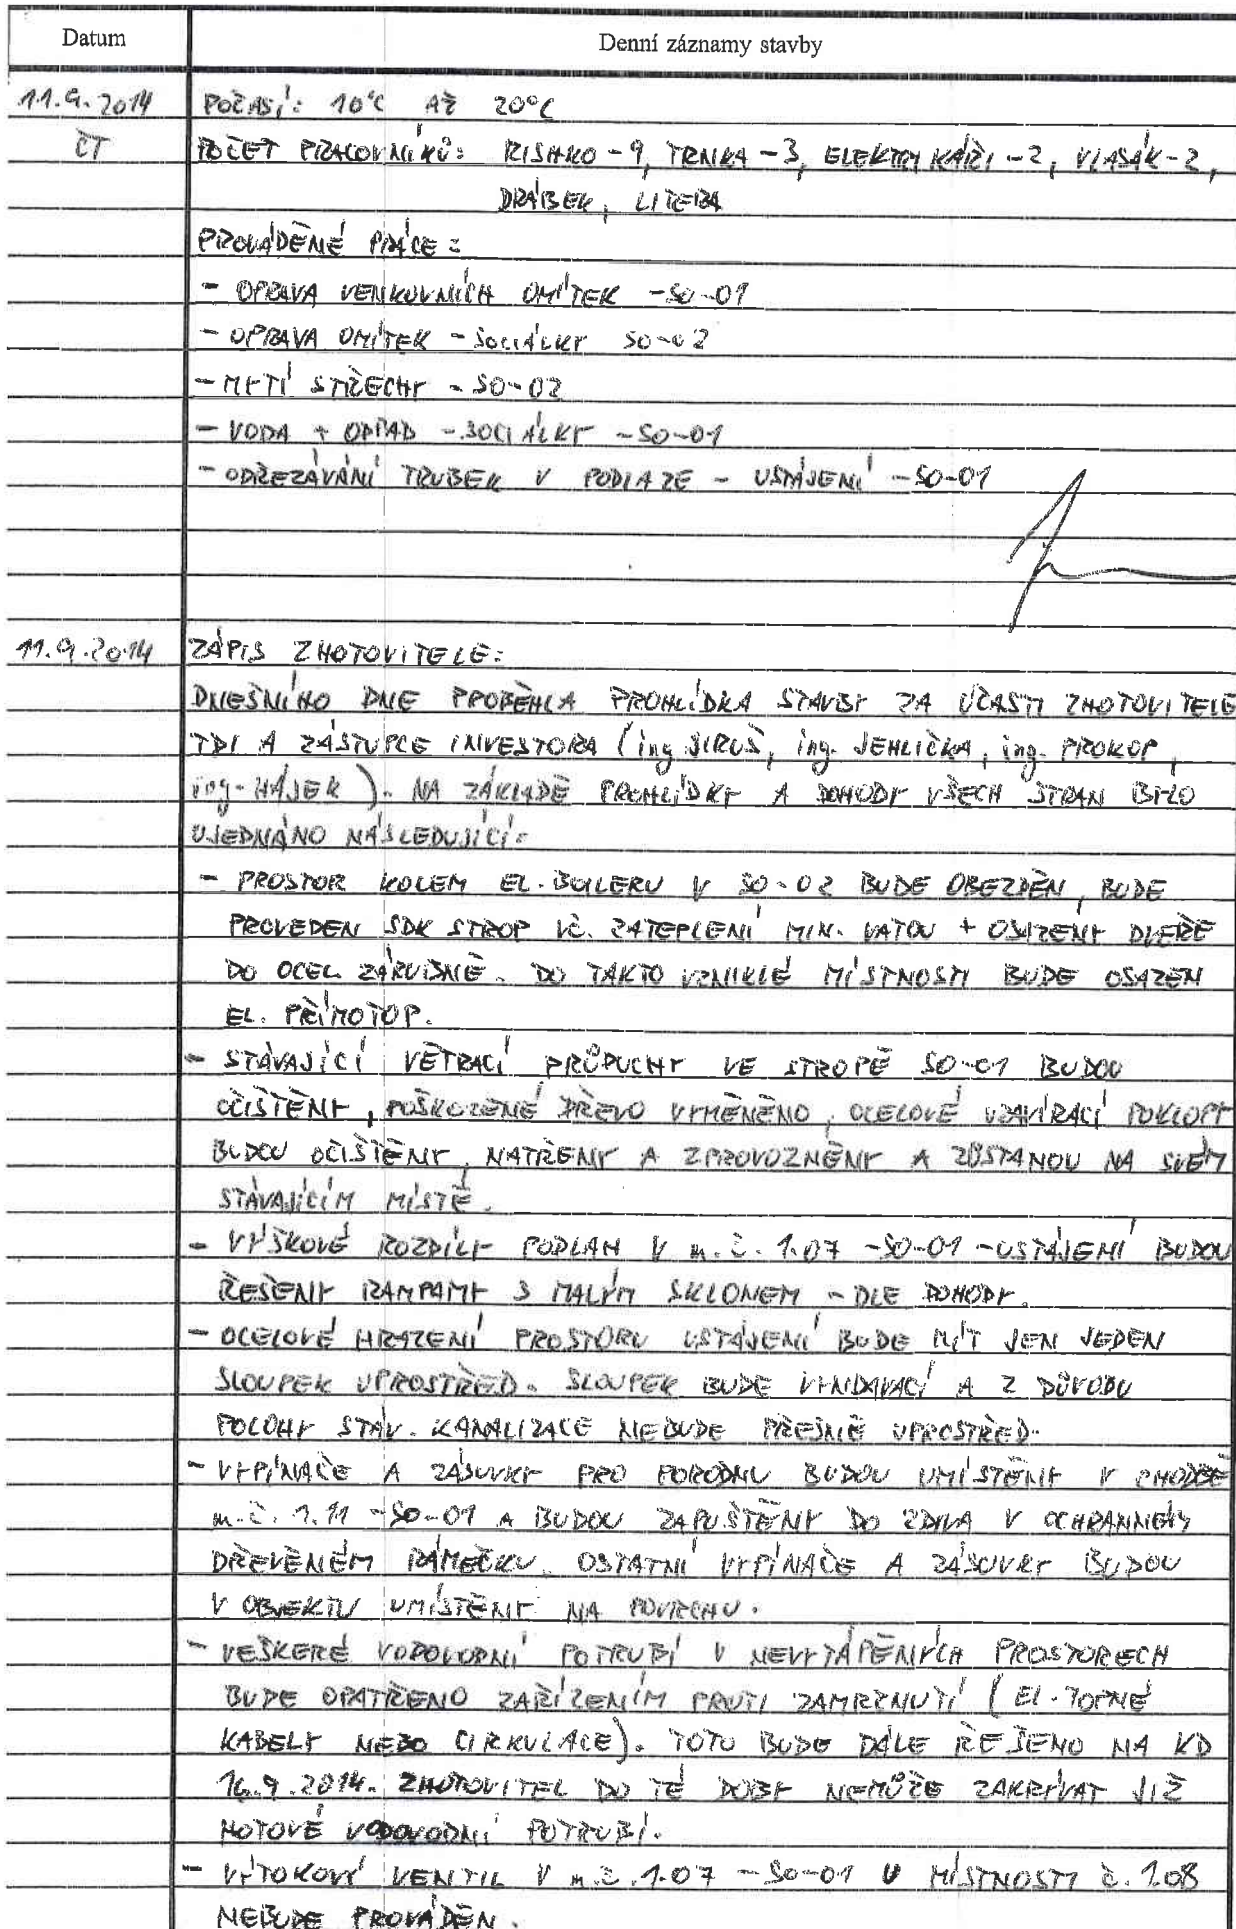 Datum Denní záznamy stavby
11.9.2014 POČASÍ: 10°C AŽ 20°C
ČT POČET PRACOVNÍKŮ: RISHKO - 9, TRNKA - 3, ELEKTRIKÁŘI - 2, VLASÁK - 2,
DRÁBEK, LITERA
PROVÁDĚNÉ PRÁCE:
- OPRAVA VENKOVNÍCH OMÍTEK - SO-01
- OPRAVA OMÍTEK - SOCIÁLKY SO-02
- MYTÍ STŘECHY - SO-02
- VODA + ODPAD - SOCIÁLKY - SO-01
- ODŘEZÁVÁNÍ TRUBEK V PODLAZE - USTÁJENÍ - SO-01
11.9.2014 ZÁPIS ZHOTOVITELE:
DNEŠNÍHO DNE PROBĚHLA PROHLÍDKA STAVBY ZA ÚČASTI ZHOTOVITELE
TDI A ZÁSTUPCE INVESTORA (ing. JIRUŠ, ing. JEHLIČKA, ing. PROKOP,
ing. HÁJEK). NA ZÁKLADĚ PROHLÍDKY A DOHODY VŠECH STRAN BYLO
UJEDNÁNO NÁSLEDUJÍCÍ:
- PROSTOR KOLEM EL. BOILERU V SO-02 BUDE OBEZDĚN, BUDE
PROVEDEN SDK STROP VČ. ZATEPLENÍ MIN. VATOU + OSAZENY DVEŘE
DO OCEL. ZÁRUBNĚ. DO TAKTO VZNIKLÉ MÍSTNOSTI BUDE OSAZEN
EL. PŘÍMOTOP.
- STÁVAJÍCÍ VĚTRACÍ PRŮDUCHY VE STROPĚ SO-01 BUDOU
OČIŠTĚNY, POŠKOZENÉ DŘEVO VYMĚNĚNO, OCELOVÉ UZAVÍRACÍ POKLOPY
BUDOU OČIŠTĚNY, NATŘENY A ZPROVOZNĚNY A ZŮSTANOU NA SVÉM
STÁVAJÍCÍM MÍSTĚ.
- VÝŠKOVÉ ROZDÍLY PODLAH V m.č. 1.07 - SO-01 - USTÁJENÍ BUDOU
ŘEŠENY RAMPAMY S MALÝM SKLONEM - DLE DOHODY.
- OCELOVÉ HRAZENÍ PROSTORU USTÁJENÍ BUDE MÍT JEN JEDEN
SLOUPEK UPROSTŘED. SLOUPEK BUDE VYNDAVACÍ A Z DŮVODU
POLOHY STÁV. KANALIZACE NEBUDE PŘESNĚ UPROSTŘED.
- VYPÍNAČE A ZÁSUVKY PRO PORODNU BUDOU UMÍSTĚNY V CHODBĚ
m.č. 1.11 - SO-01 A BUDOU ZAPUŠTĚNY DO ZDIVA V OCHRANNÉM
DŘEVĚNÉM RÁMEČKU. OSTATNÍ VYPÍNAČE A ZÁSUVKY BUDOU
V OBJEKTU UMÍSTĚNY NA POVRCHU.
- VEŠKERÉ VODOVODNÍ POTRUBÍ V NEVYTÁPĚNÝCH PROSTORECH
BUDE OPATŘENO ZAŘÍZENÍM PROTI ZAMRZNUTÍ (EL. TOPNÉ
KABELY NEBO CIRKULACE). TOTO BUDE DÁLE ŘEŠENO NA KD
16.9.2014. ZHOTOVITEL DO TÉ DOBY NEMŮŽE ZAKRÝVAT JIŽ
HOTOVÉ VODOVODNÍ POTRUBÍ.
- VÝTOKOVÝ VENTIL V m.č. 1.07 - SO-01 U MÍSTNOSTI č. 1.08
NEBUDE PROVÁDĚN.